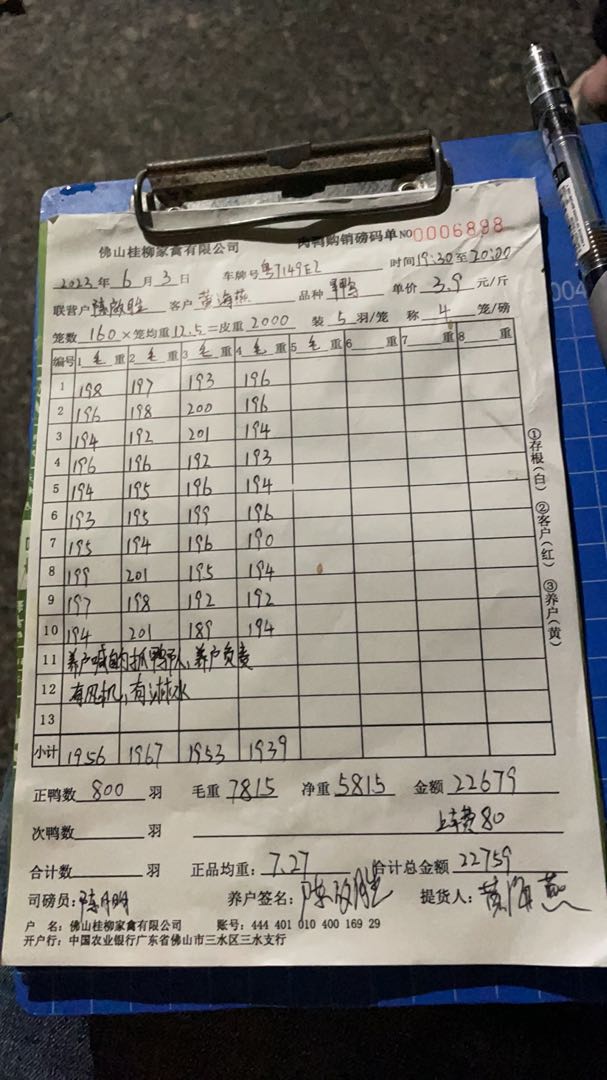 佛山桂柳家禽有限公司 肉鸭购销磅码单 NO 0006898
2023年 6 月 3 日 车牌号 粤J149E2 时间19:30至20:00
联营户 客户 黄海燕 品种 单价 3.9 元/斤
笼数 160 ×笼均重 12.5 =皮重 2000 装 5 羽/笼 称 4 笼/磅
编号 1 毛 重 2 毛 重 3 毛 重 4 毛 重 5 毛 重 6 重 7 重 8 重
1 198 197 193 196
2 196 198 200 196
3 194 192 201 194
4 196 196 192 193
5 194 195 196 194
6 193 195 199 196
7 195 194 196 190
8 199 201 195 194
9 197 198 192 192
10 194 201 189 194
11 养户喊的抓鸭队,养户负责
12 有风机,有淋水
13
小计 1956 1967 1953 1939
正鸭数 800 羽 毛重 7815 净重 5815 金额 22679
次鸭数 羽 上车费80
合计数 羽 正品均重: 7.27 合计总金额 22759
司磅员: 养户签名: 提货人: 黄海燕
户 名: 佛山桂柳家禽有限公司 账号: 444 401 010 400 169 29
开户行: 中国农业银行广东省佛山市三水区三水支行
①存根(白) ②客户(红) ③养户(黄)
004